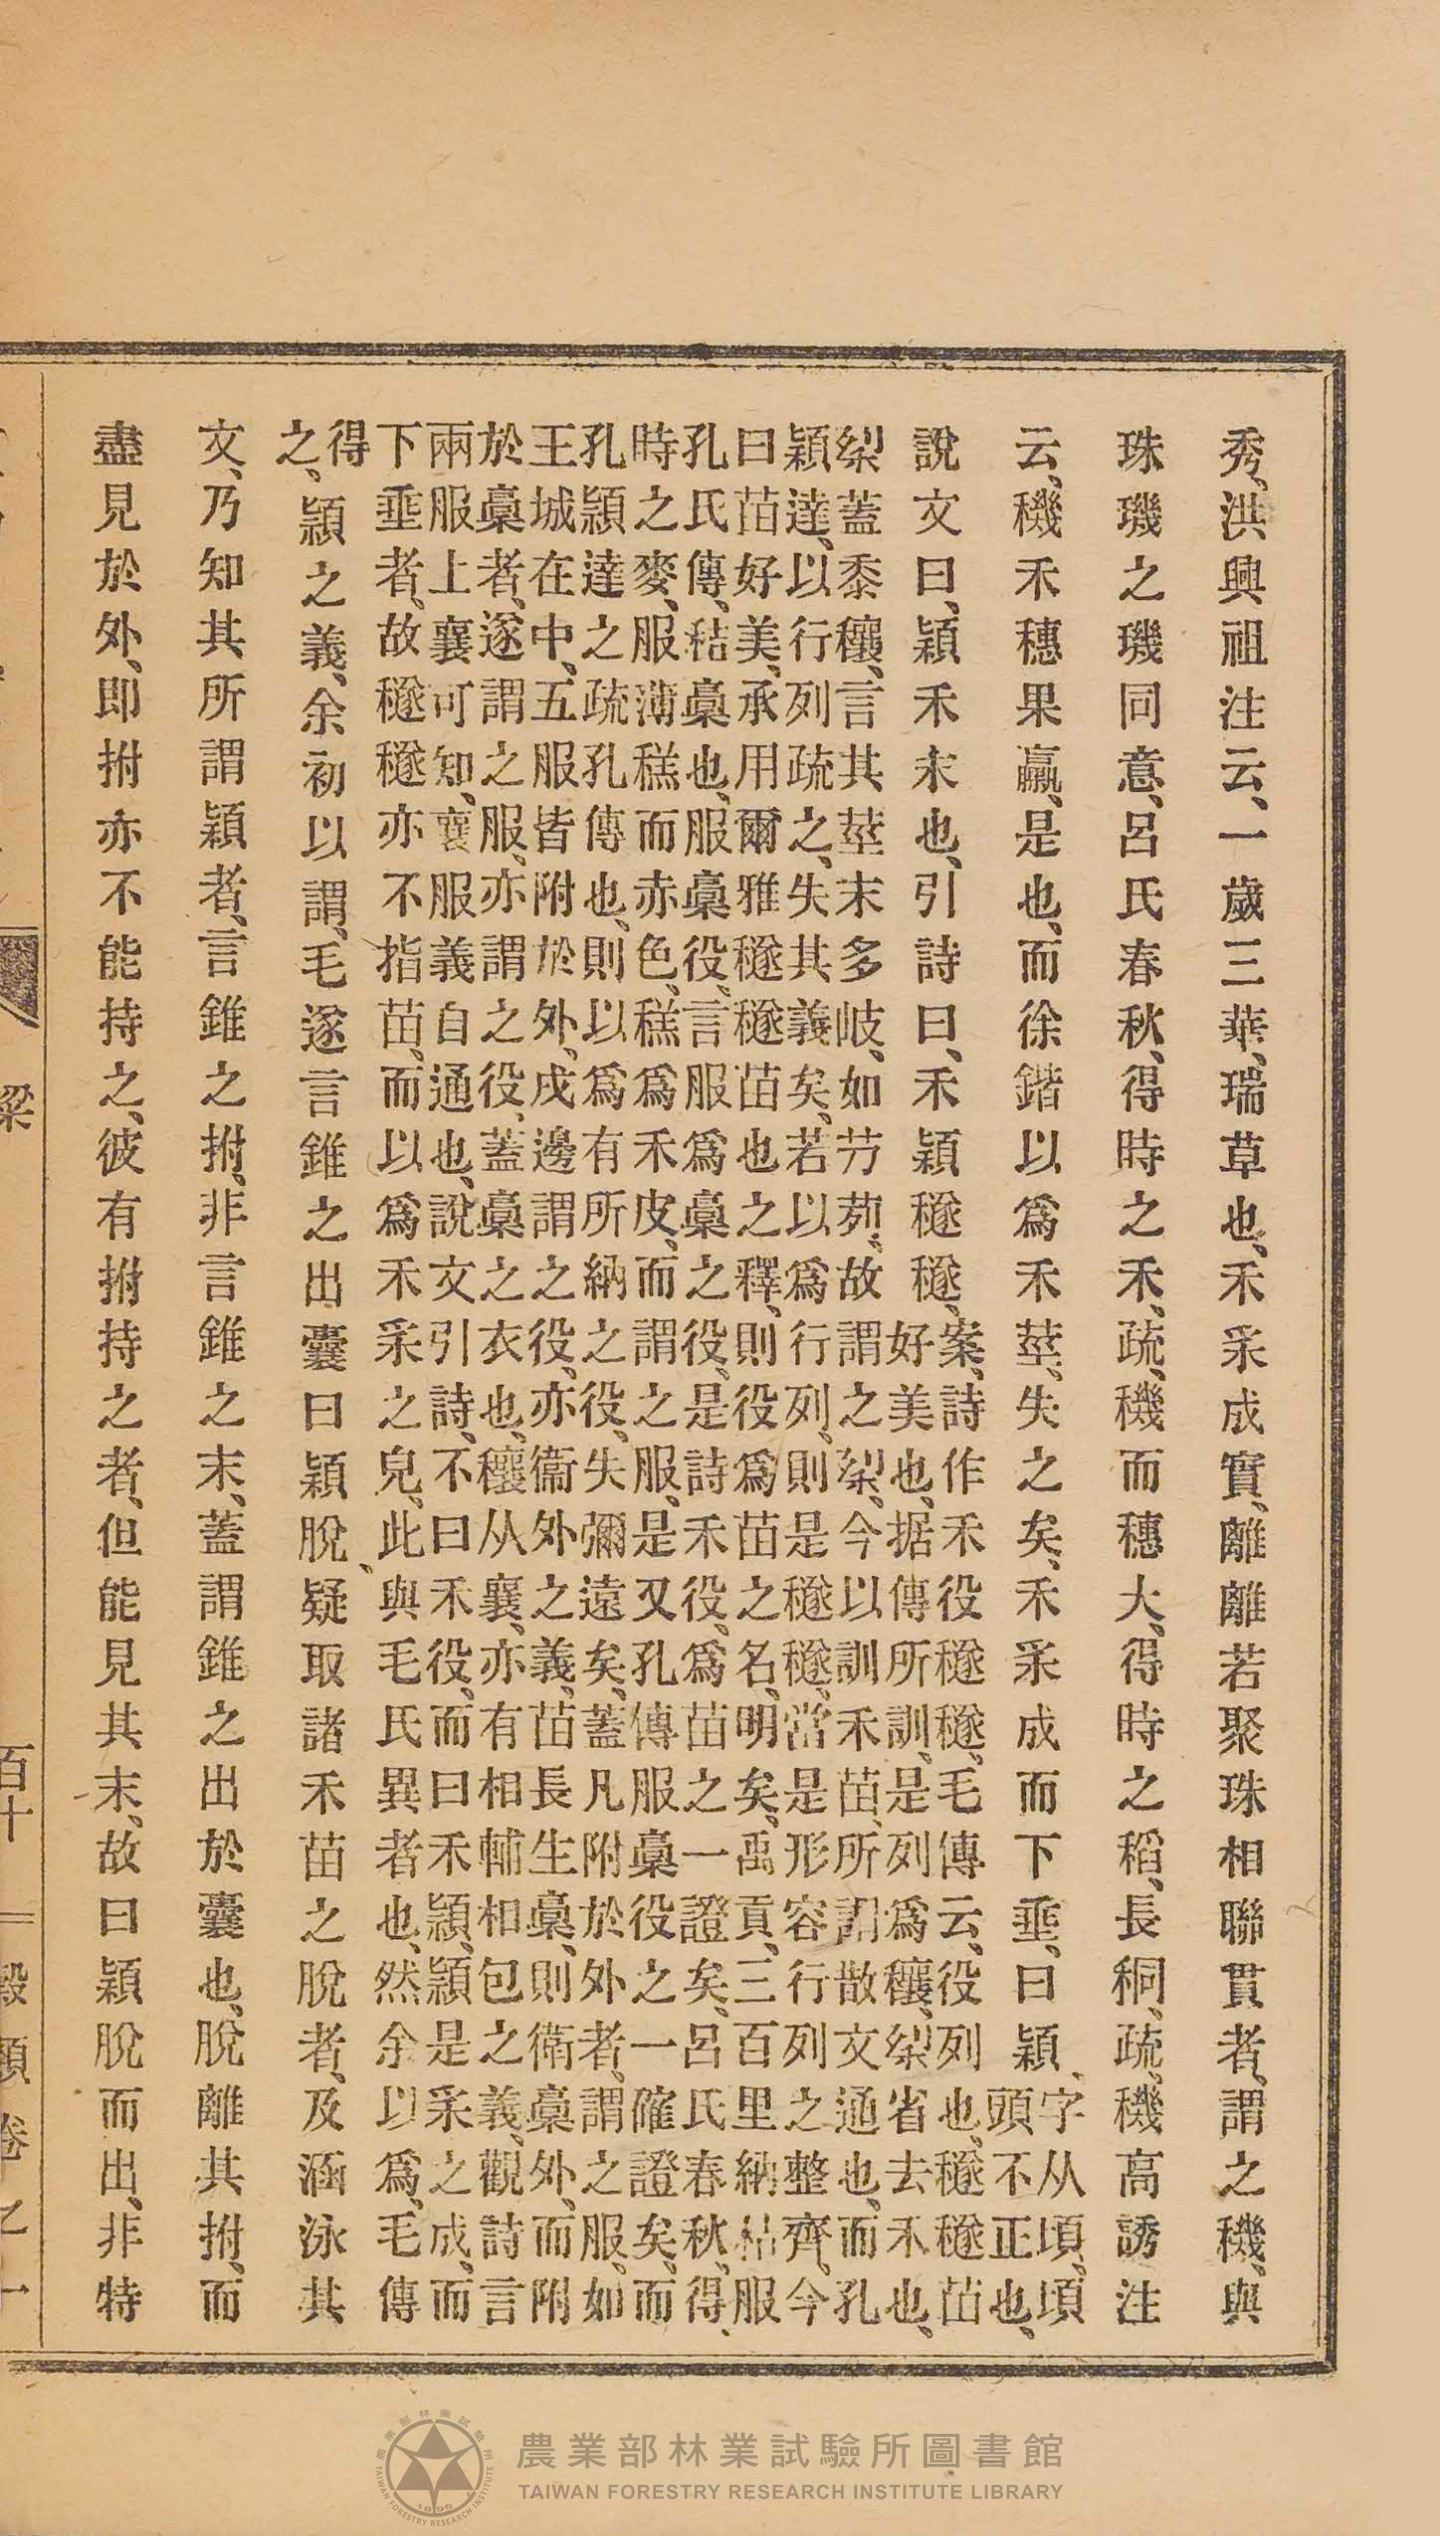 秀、洪興祖注云、一歲三華、瑞草也、禾采成實、離離若聚珠相聯貫者、謂之穖、與
珠璣之璣同意、呂氏春秋、得時之禾、疏穖而穗大、得時之稻、長秱、疏穖、高誘注
云、穖禾穗果蠃、是也、而徐鍇以爲禾莖、失之矣、禾采成而下垂、曰穎、
字从頃、頃
頭不正也、
說文曰、穎禾末也、引詩曰、禾穎穟穟、
案、詩作禾役穟穟、毛傳云、役列也、穟穟苗
好美也、据傳所訓、是列爲穰、梨省去禾也、
梨蓋黍穰、言其莖末多岐、如芀茢、故謂之梨、今以訓禾苗、所謂散文通也、而孔
穎達、以行列疏之、失其義矣、若以爲行列、則是穟穟、當是形容行列之整齊、今
曰苗好美、承用爾雅穟穟苗也之釋、則役爲苗之名、明矣、禹貢、三百里納秸服
孔氏傳、秸稾也、服稾役、言服爲稾之役、是詩禾役、爲苗之一證矣、呂氏春秋、得
時之麥、服薄穛而赤色、穛爲禾皮、而謂之服、是又孔傳服稾役之一確證矣、而
孔穎達之疏孔傳也、則以爲有所納之役、失彌遠矣、蓋凡附於外者、謂之服、如
王城在中、五服皆附於外、戍邊謂之役、亦衞外之義、苗長生稾、則衛稾外、而附
於稾者、遂謂之服、亦謂之役、蓋稾之衣也、穰从襄、亦有相輔相包之義、觀詩言
兩服上襄可知、襄服義自通也、說文引詩、不曰禾役、而曰禾穎、穎是采之成、而
下垂者、故穟穟亦不指苗、而以爲禾采之皃、此與毛氏異者也、然余以爲、毛傳
得
之、
穎之義、余初以謂、毛遂言錐之出囊曰穎脫、疑取諸禾苗之脫者、及涵泳其
文、乃知其所謂穎者、言錐之拊、非言錐之末、蓋謂錐之出於囊也、脫離其拊、而
盡見於外、即拊亦不能持之、彼有拊持之者、但能見其末、故曰穎脫而出、非特
粱
百十
穀類卷之一
農業部林業試驗所圖書館
TAIWAN FORESTRY RESEARCH INSTITUTE LIBRARY